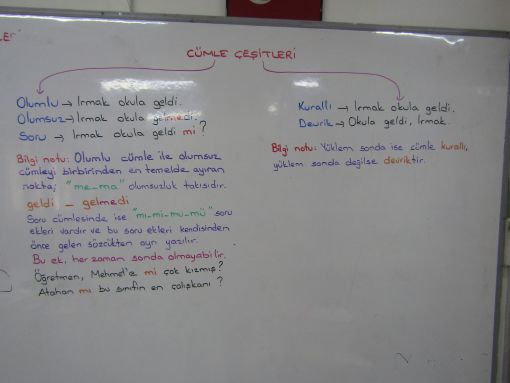 LERİ
CÜMLE ÇEŞİTLERİ
Olumlu → Irmak okula geldi.
Olumsuz → Irmak okula gelmedi.
Soru → Irmak okula geldi mi?
Bilgi notu: Olumlu cümle ile olumsuz
cümleyi birbirinden en temelde ayıran
nokta; "me-ma" olumsuzluk takısıdır.
geldi - gelmedi
Soru cümlesinde ise "mı-mi-mu-mü" soru
ekleri vardır ve bu soru ekleri kendisinden
önce gelen sözcükten ayrı yazılır.
Bu ek, her zaman sonda olmayabilir.
Öğretmen, Mehmet'e mi çok kızmış?
Atahan mı bu sınıfın en çalışkanı?
Kurallı → Irmak okula geldi.
Devrik → Okula geldi, Irmak.
Bilgi notu: Yüklem sonda ise cümle kurallı,
yüklem sonda değilse devriktir.